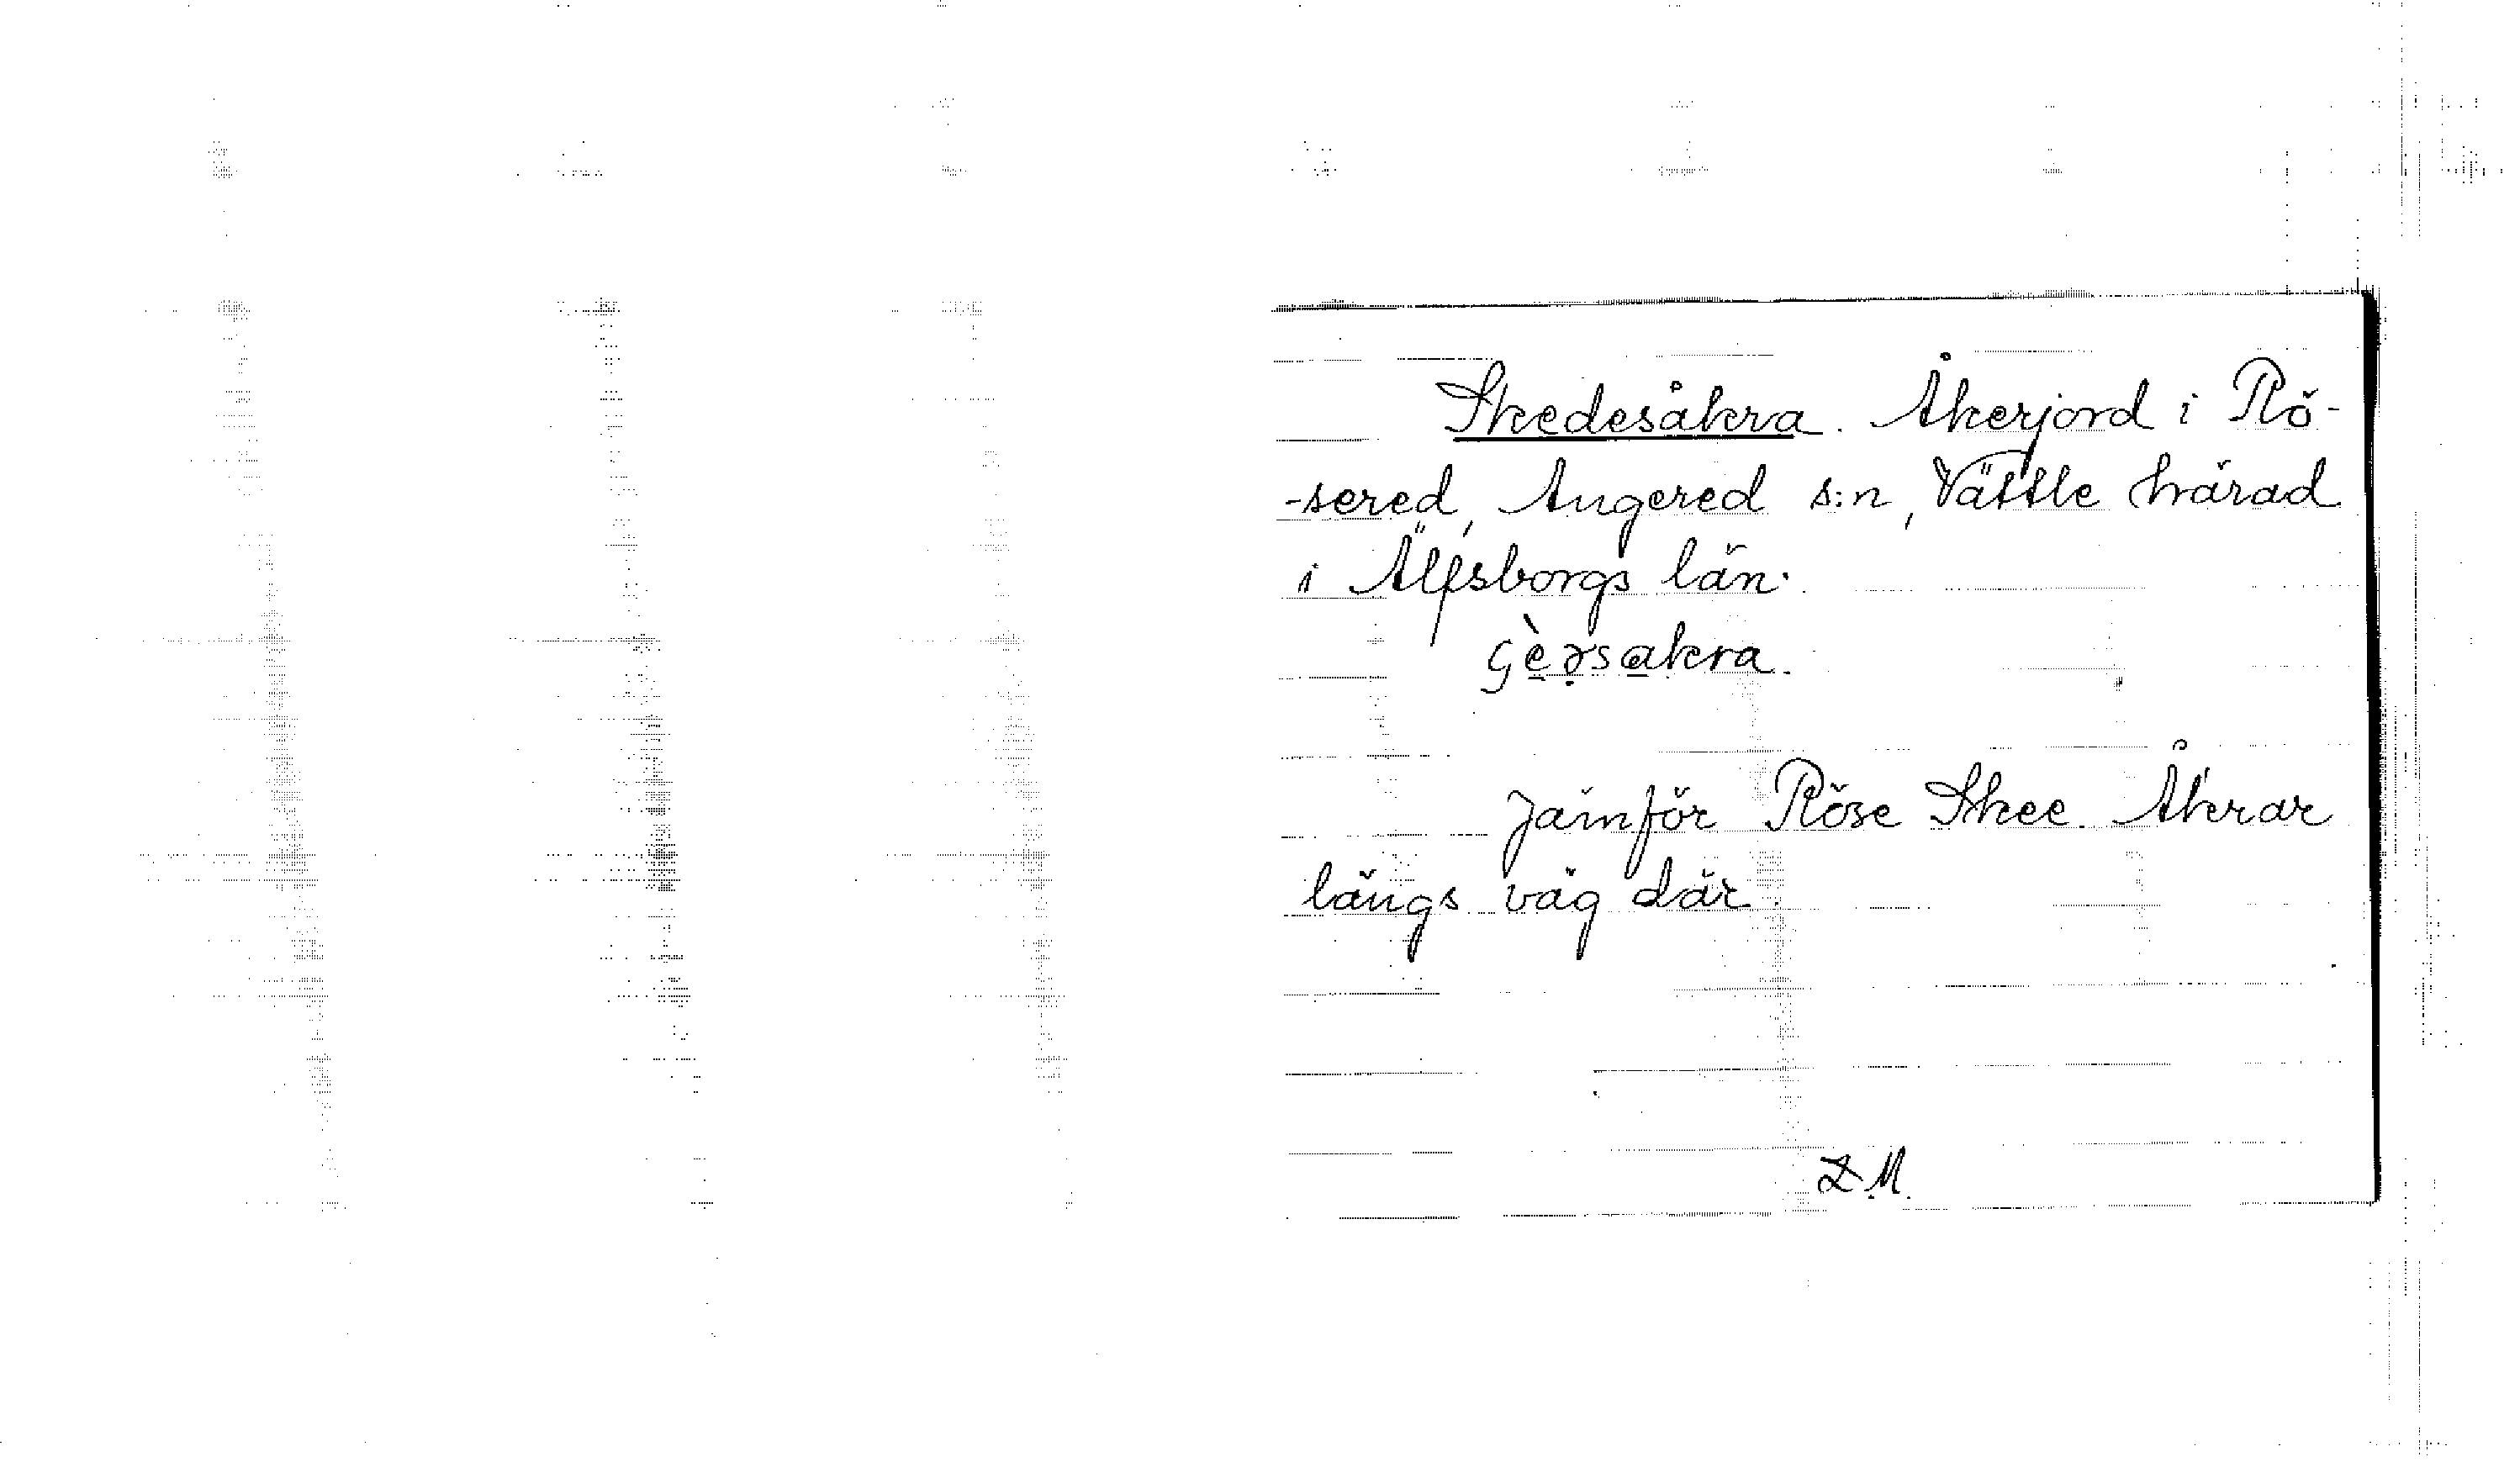 Skedesåkra. Åkerjord i Rö-
-sered, Angered s:n, Vättle härad
i Älfsborgs län.
Jämför Röse Skee. Åkrar
längs väg där.